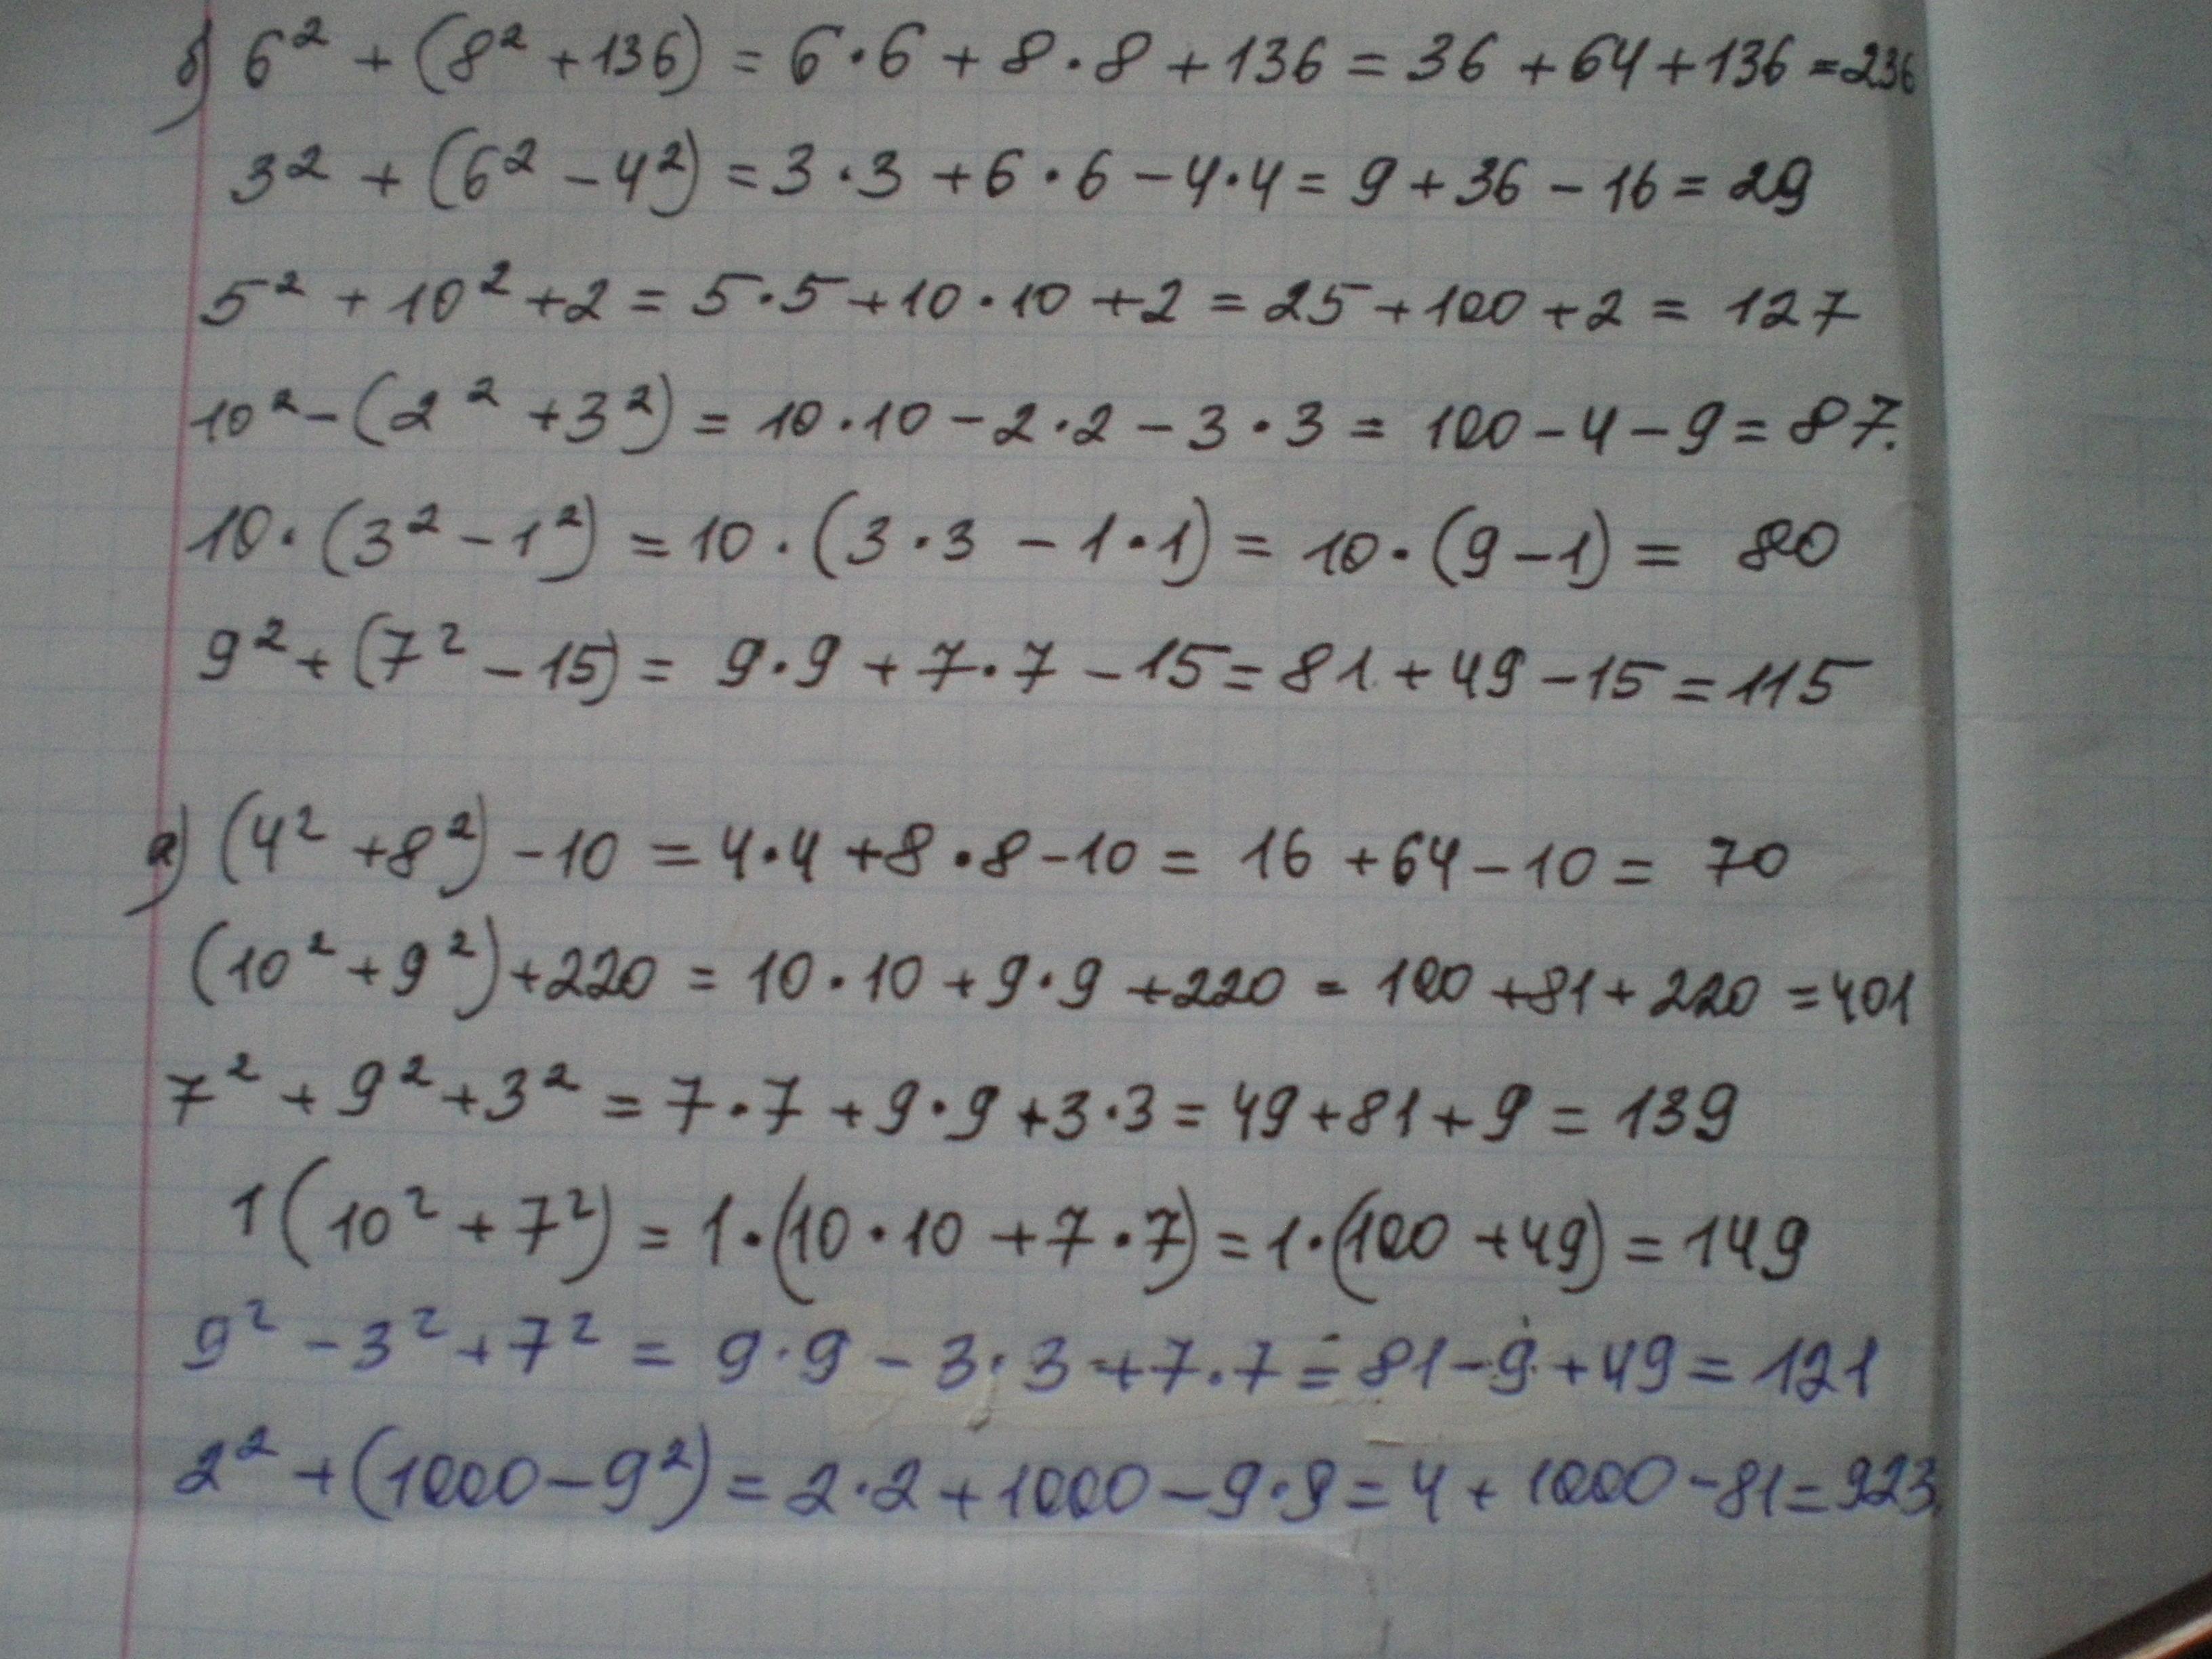 б) 6² + (8² + 136) = 6·6 + 8·8 + 136 = 36 + 64 + 136 = 236
3² + (6² - 4²) = 3·3 + 6·6 - 4·4 = 9 + 36 - 16 = 29
5² + 10² + 2 = 5·5 + 10·10 + 2 = 25 + 100 + 2 = 127
10² - (2² + 3²) = 10·10 - 2·2 - 3·3 = 100 - 4 - 9 = 87.
10·(3² - 1²) = 10·(3·3 - 1·1) = 10·(9 - 1) = 80
9² + (7² - 15) = 9·9 + 7·7 - 15 = 81 + 49 - 15 = 115
а) (4² + 8²) - 10 = 4·4 + 8·8 - 10 = 16 + 64 - 10 = 70
(10² + 9²) + 220 = 10·10 + 9·9 + 220 = 100 + 81 + 220 = 401
7² + 9² + 3² = 7·7 + 9·9 + 3·3 = 49 + 81 + 9 = 139
1(10² + 7²) = 1·(10·10 + 7·7) = 1·(100 + 49) = 149
9² - 3² + 7² = 9·9 - 3·3 + 7·7 = 81 - 9 + 49 = 121
2² + (1000 - 9²) = 2·2 + 1000 - 9·9 = 4 + 1000 - 81 = 923.